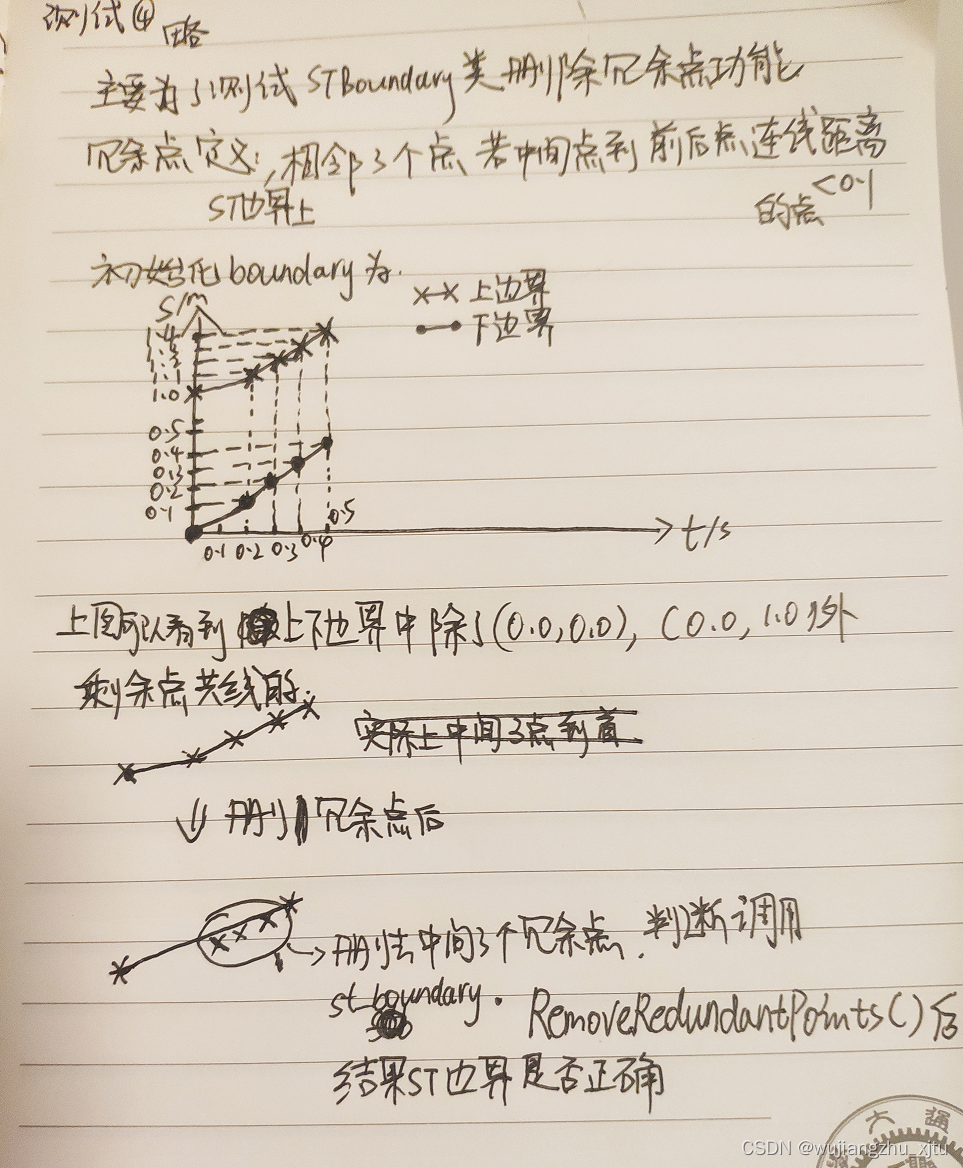 测试④ 略
主要为了测试STBoundary类删除冗余点功能
冗余点定义:,相邻3个点 若中间点到前后点连线距离
ST边界上
<0.1
的点
初始化boundary为.
S/m
上边界
下边界
1.4
1.1
1.0
0.5
0.4
0.3
0.2
0.1
0.1 0.2 0.3 0.4 0.5
t/s
上图可以看到 上下边界中除了(0.0,0.0), (0.0, 1.0)外
剩余点共线的.
实际上中间3点到首
删 冗余点后
删去中间3个冗余点. 判断调用
st_boundary. RemoveRedundantPoints()后
结果ST边界是否正确
大 通
CSDN @wujiangzhu_xjtu